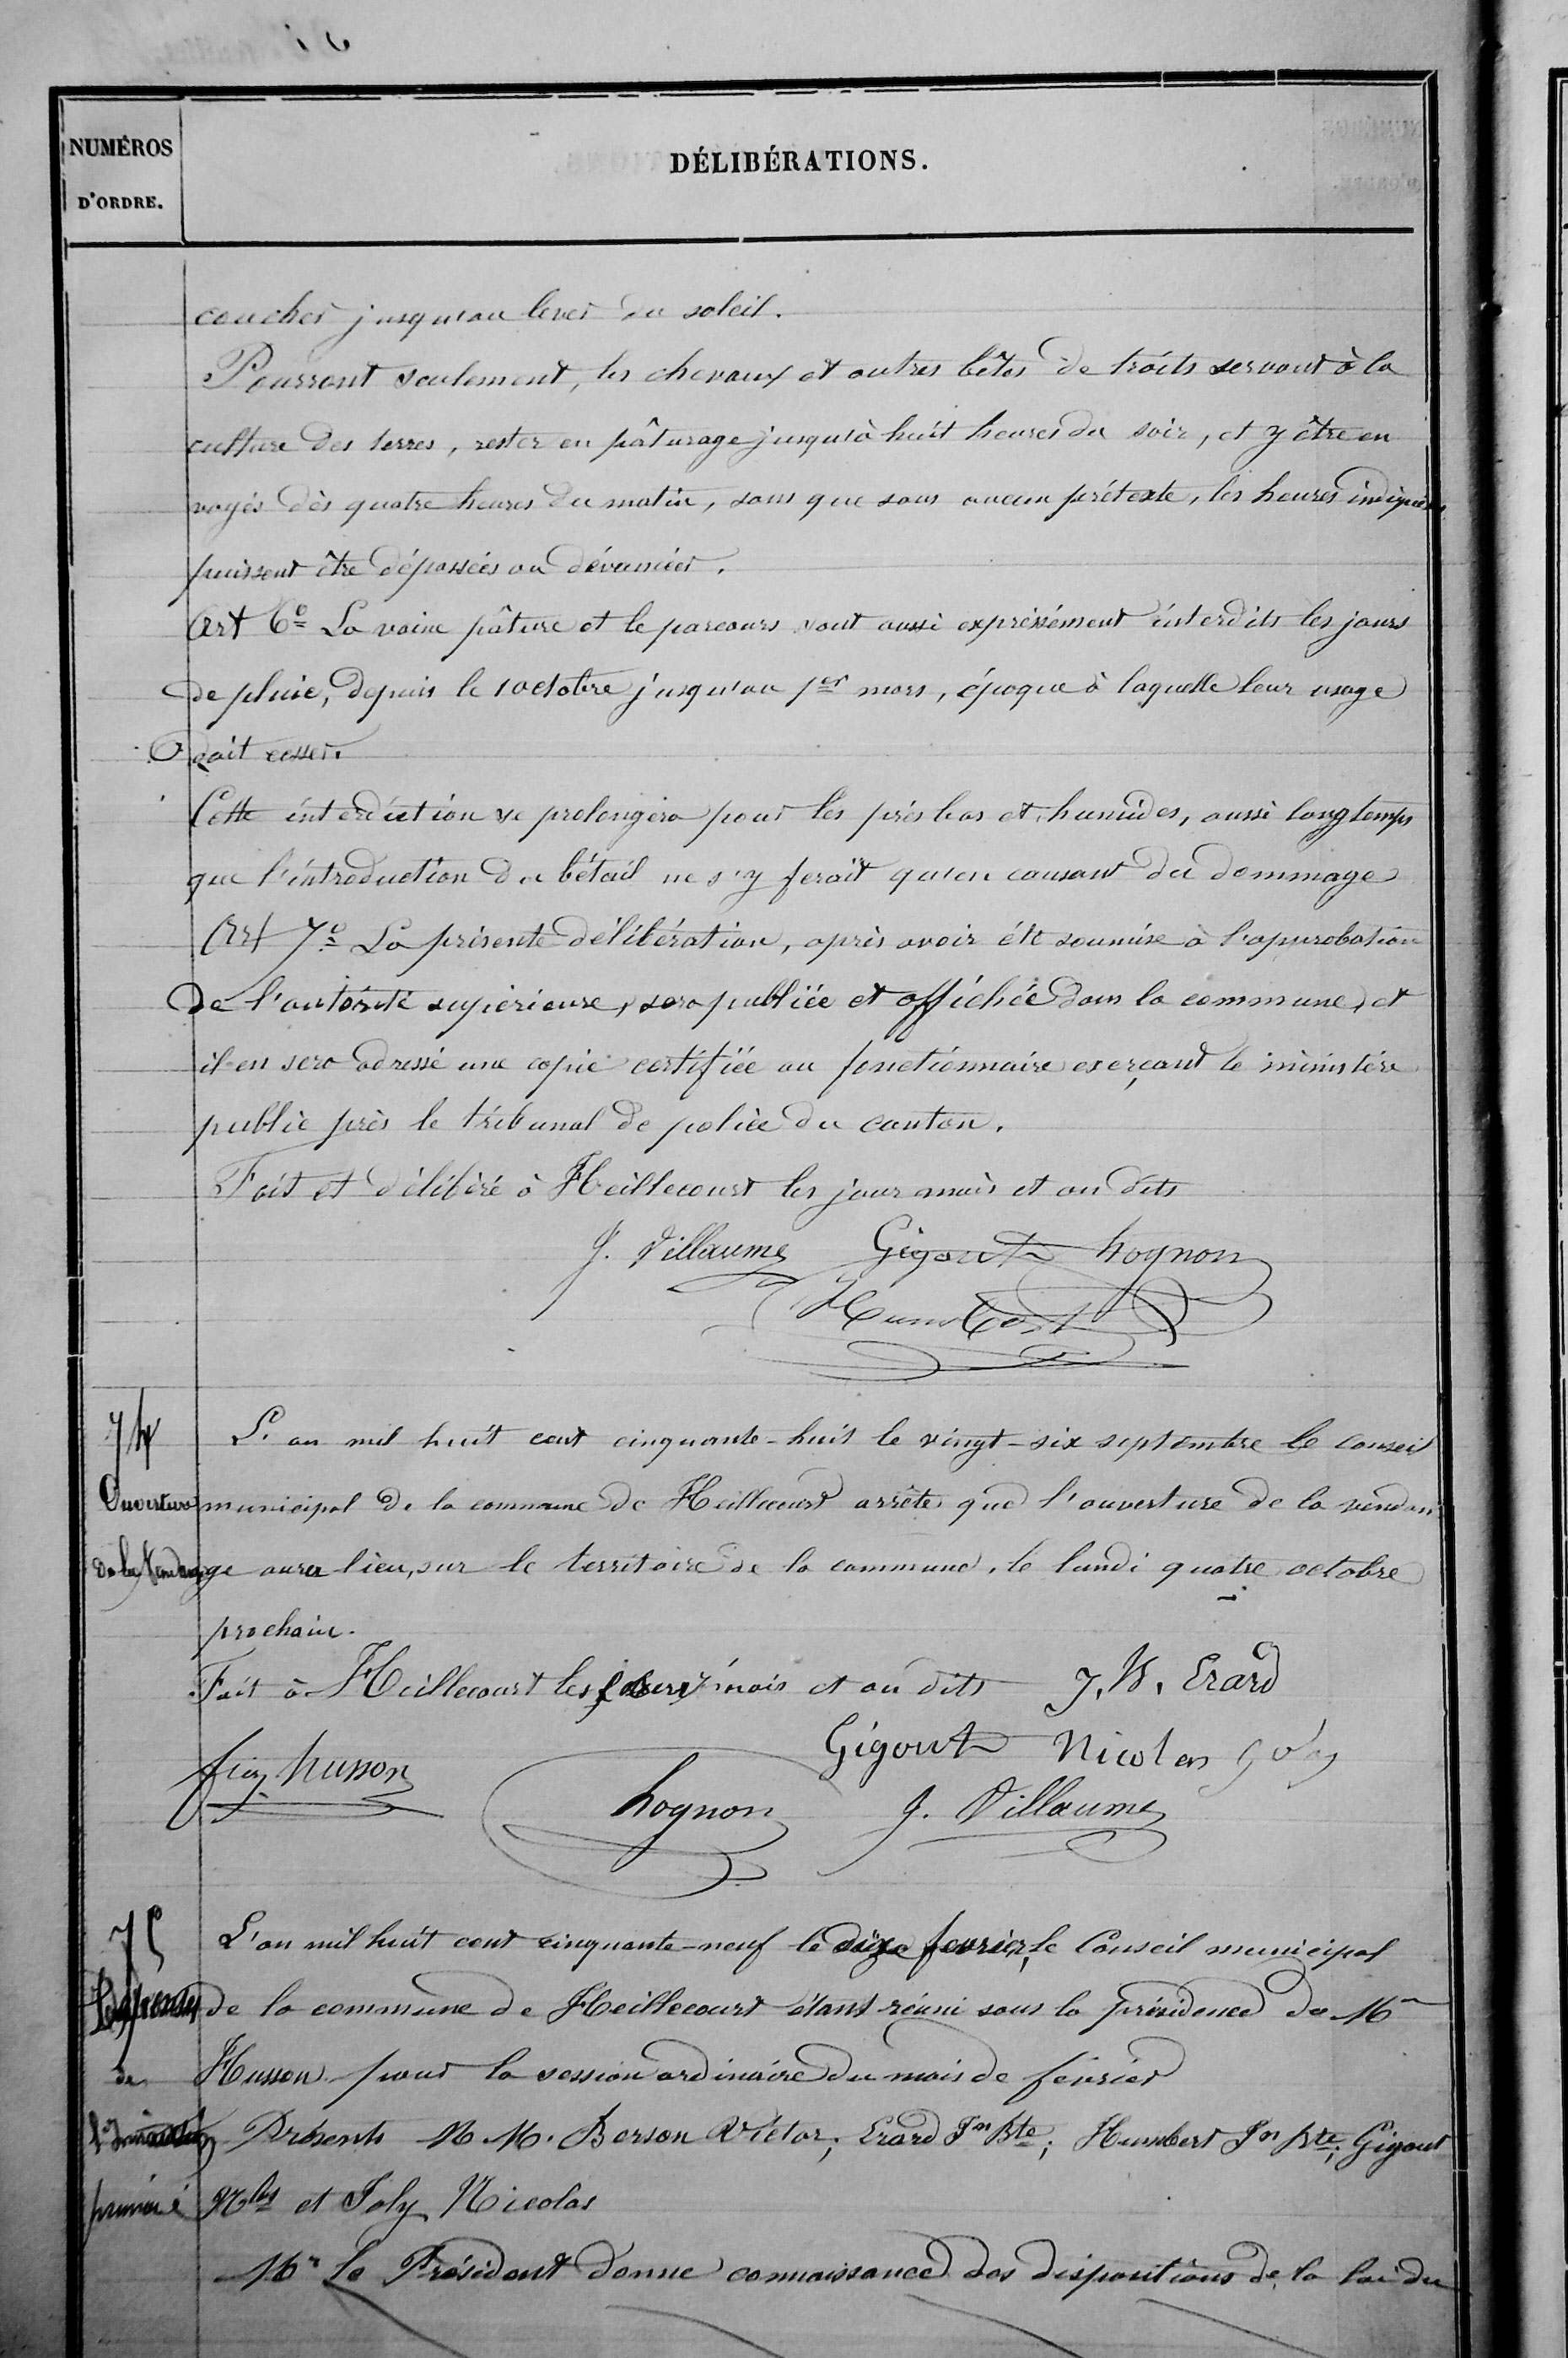 NUMÉROS
D'ORDRE.
DÉLIBÉRATIONS.
coucher jusqu'au lever du soleil.
Pourront seulement, les chevaux et autres bêtes de traits servant à la
culture des terres, rester en pâturage jusqu'à huit heures du soir, et y être en
voyés dès quatre heures du matin, sans que sous aucun prétexte, les heures indiquées
puissent être dépassées ou dévancées.
Art 6e La vaine pâture et le parcours sont aussi expréssément interdits les jours
de pluie, depuis le 1 octobre jusqu'au 1er mars, époque à laquelle leur usage
doit cesser.
Cette interdiction se prolongera pour les prés bas et humides, aussi longtemps
que l'introduction du bétail ne s'y ferait qu'en causant du dommage
Art 7e La présente délibération, après avoir été soumise à l'approbation
de l'autorité supérieure, sera publiée et affichée dans la commune, et
il en sera adressé une copie certifiée au fonctionnaire exerçant le ministère
public près le tribunal de police du canton.
Fait et délibéré à Heillecourt les jour mois et an dits
J. Villaume Gigout hognon
Humbert
74
Ouverture
de la Vendange
L'an mil huit cent cinquante-huit le vingt-six septembre le conseil
municipal de la commune de Heillecourt arrête que l'ouverture de la vendan
ge aura lieu, sur le territoire de la commune, le lundi quatre octobre
prochain.
Fait à Heillecourt les jour mois et an dits J. B. Erard
Gigout Nicolas
husson hognon J. Villaume
75
de
primaire
L'an mil huit cent cinquante-neuf le dix fevrier, le Conseil municipal
de la commune de Heillecourt étant réuni sous la présidence de Mr
Husson pour la session ordinaire du mois de février
Présents M M. Berson Victor; Erard Jn Bte; Humbert Jn Bte; Gigout
Nlas et Joly Nicolas
Mr le Président donne connaissance des dispositions de la loi du